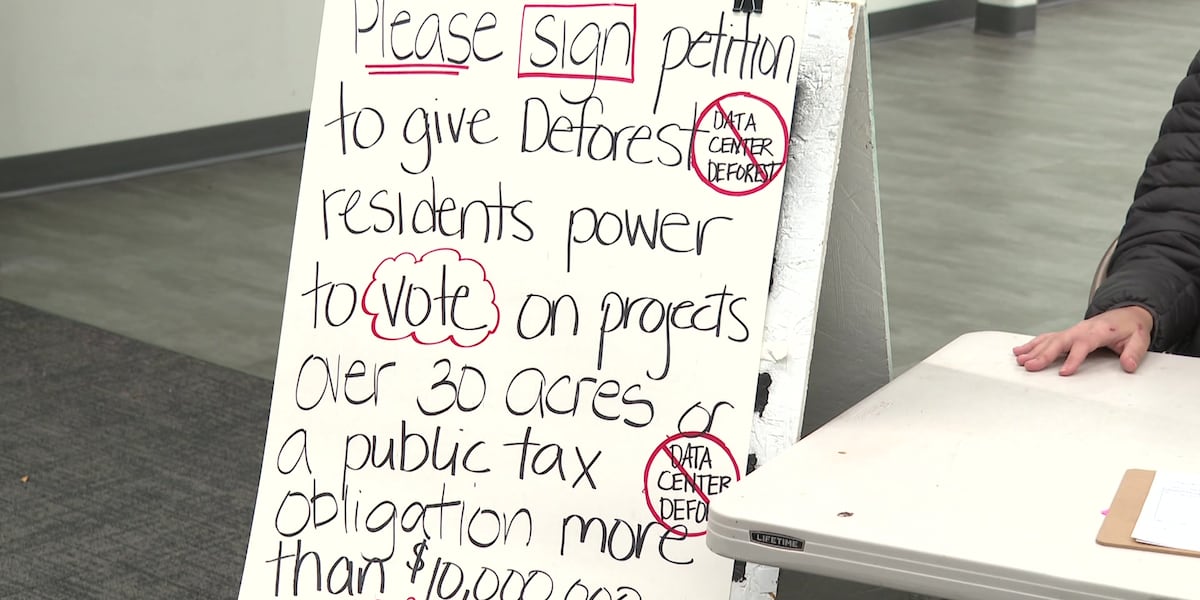 Please sign petition
to give Deforest
DATA
CENTER
DEFOREST
residents power
to vote on projects
over 30 acres or
a public tax
DATA
CENTER
DEFO
obligation more
than $10,000,000
LIFETIME